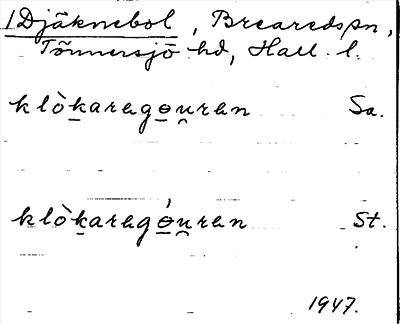 1 Djäknebol, Breareds sn,
Tönnersjö hd, Hall. l.
klòkaragọu̯ren Sa.
klòkaragọ́u̯ren St.
1947.